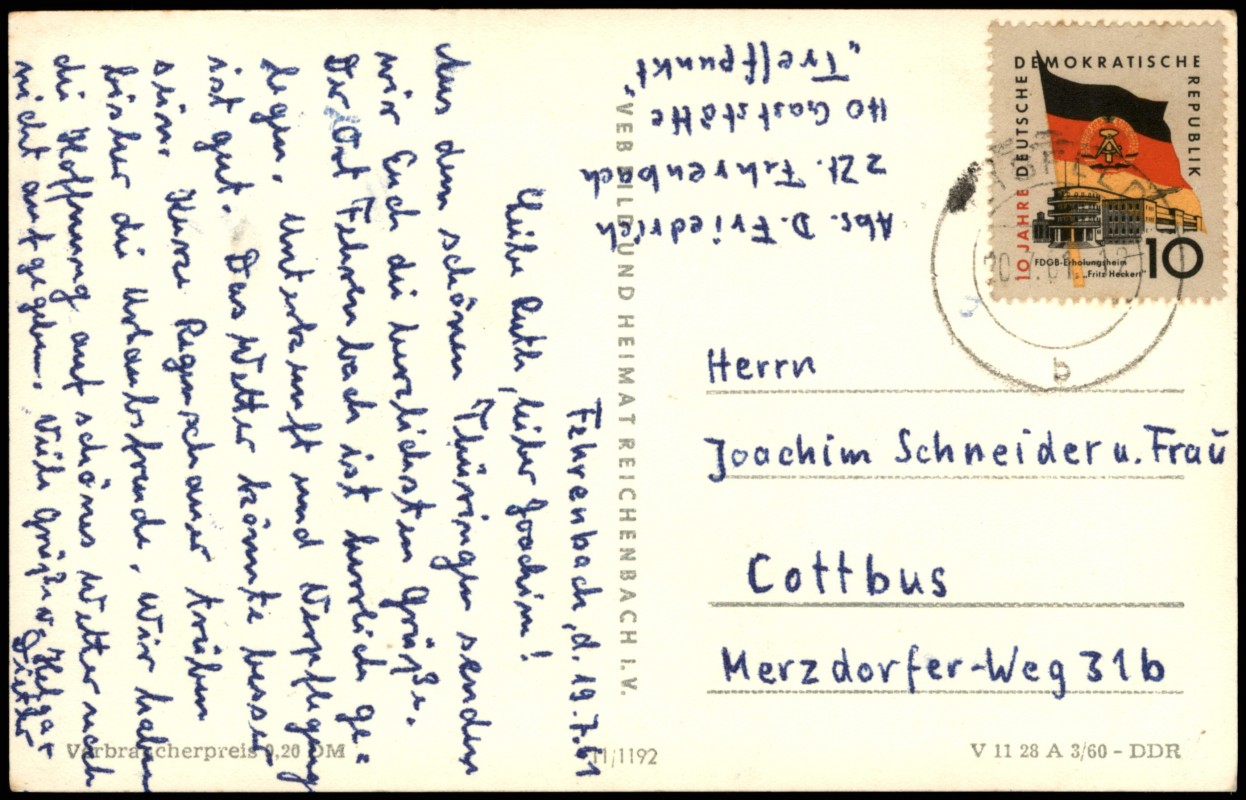 Fehrenbach, d. 19.7.61
Liebe Ruth, lieber Joachim!
Aus dem schönen Thüringen senden
wir Euch die herzlichsten Grüße.
Der Ort Fehrenbach ist herrlich ge=
legen. Unterkunft und Verpflegung
ist gut. Das Wetter könnte besser
sein. Kurze Regenschauer trüben
bisher die Urlaubsfreude. Wir haben
die Hoffnung auf schönes Wetter noch
nicht aufgegeben. Viele Grüße v. Helga +
Dieter
Abs. D. Friedrich
z Zt. Fehrenbach
HO Gaststätte
„Treffpunkt"
VEB BILD UND HEIMAT REICHENBACH I. V.
DEUTSCHE DEMOKRATISCHE REPUBLIK
10 JAHRE
FDGB-Erholungsheim
„Fritz Heckert"
10
b
Herrn
Joachim Schneider u. Frau
Cottbus
Merzdorfer-Weg 31b
Verbraucherpreis 0,20 DM
11/1192
V 11 28 A 3/60 – DDR